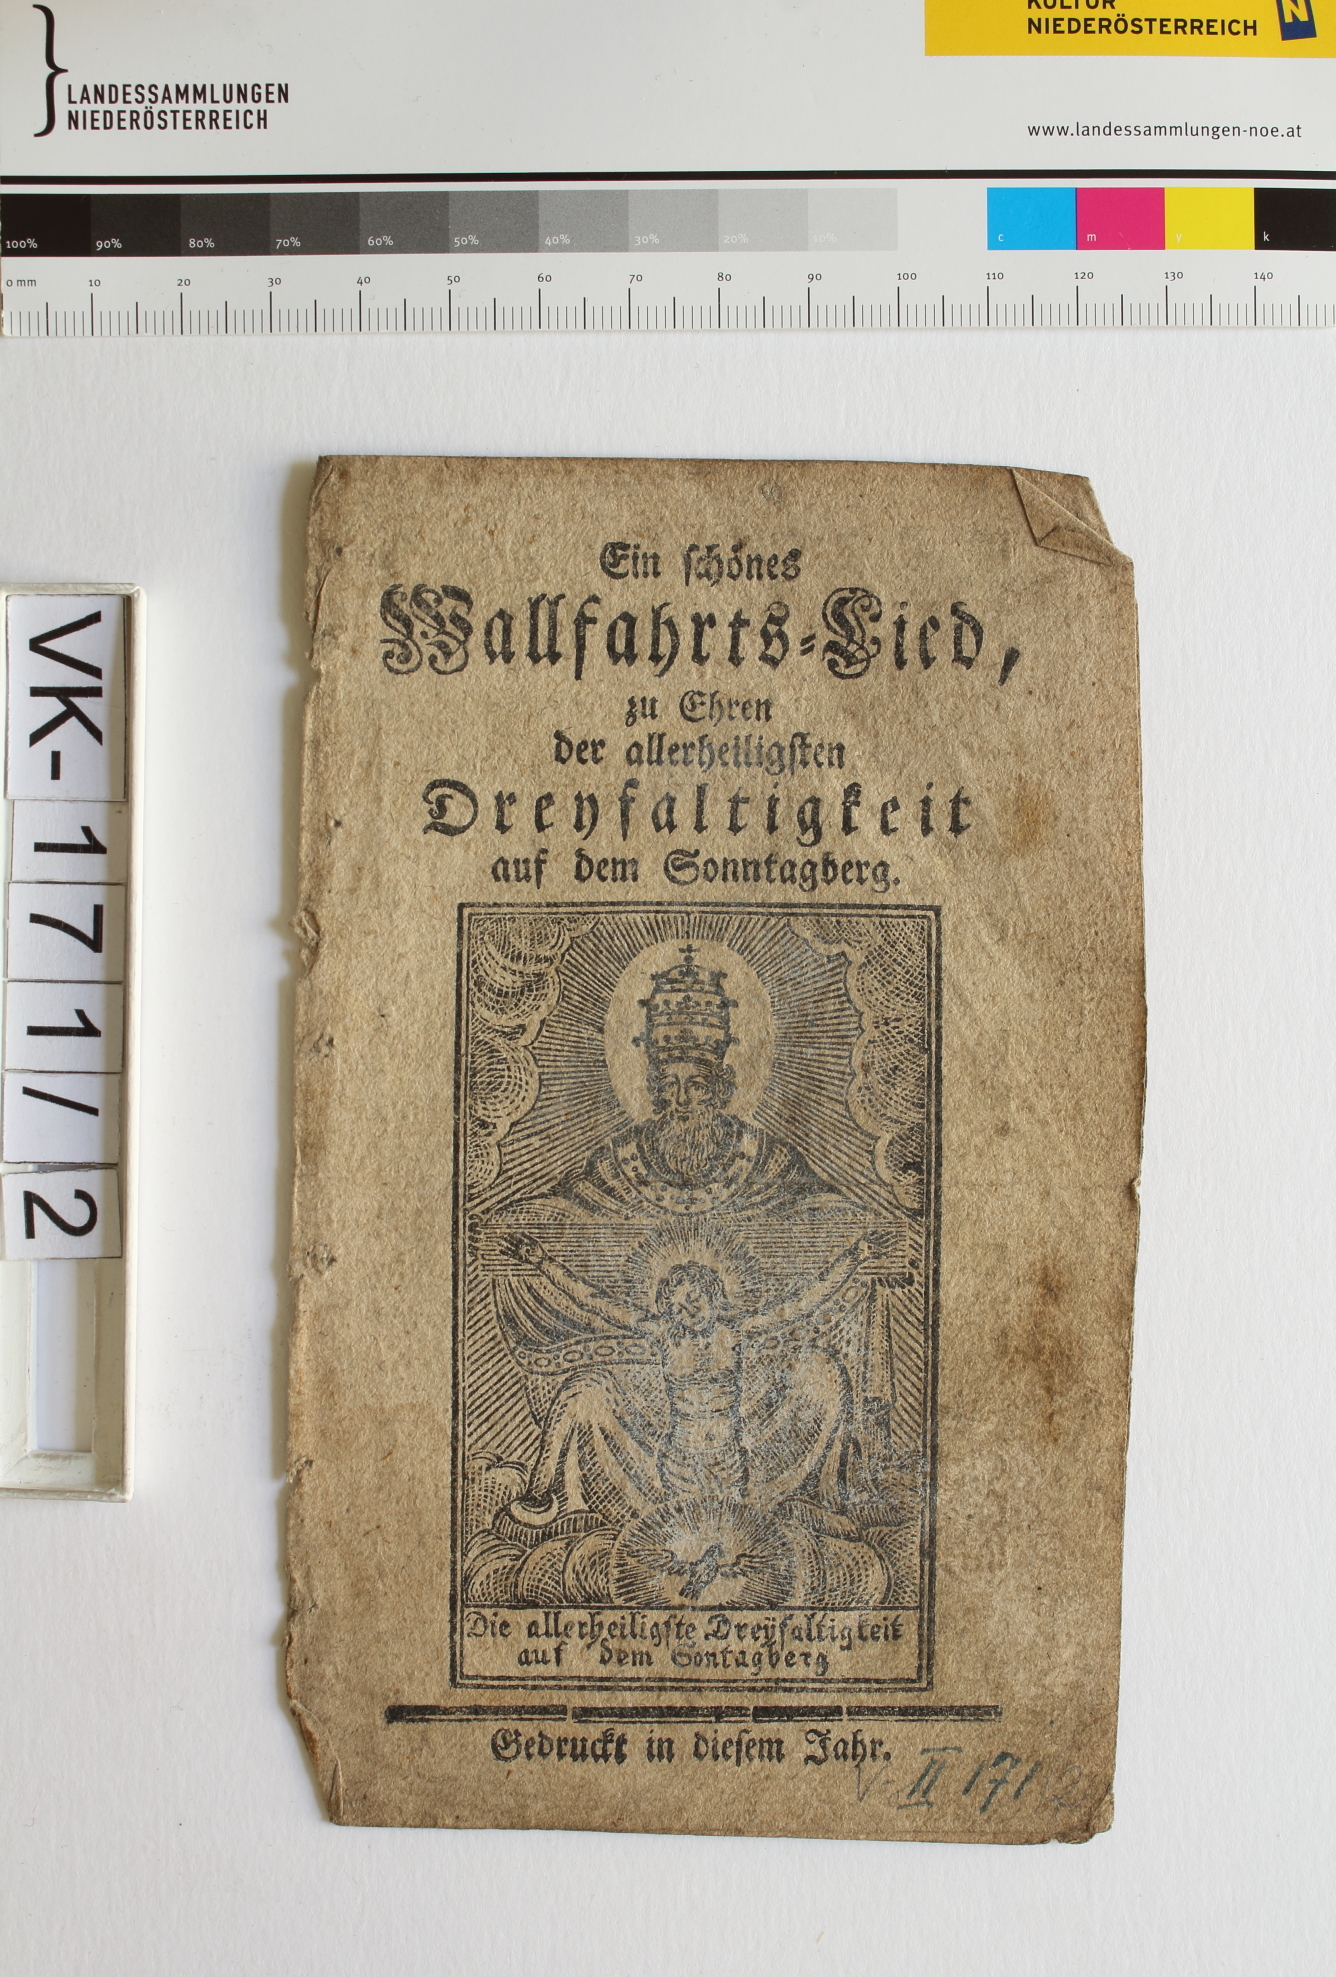 LANDESSAMMLUNGEN
NIEDERÖSTERREICH
KULTUR
NIEDERÖSTERREICH
N
www.landessammlungen-noe.at
100% 90% 80% 70% 60% 50% 40% 30% 20% 10% c m y k
0 mm 10 20 30 40 50 60 70 80 90 100 110 120 130 140
VK-171/2
Ein schönes
Wallfahrts-Lied,
zu Ehren
der allerheiligsten
Dreyfaltigkeit
auf dem Sonntagberg.
Die allerheiligste Dreÿfaltigkeit
auf dem Sontagberg
Gedruckt in diesem Jahr.
V. II 171 2